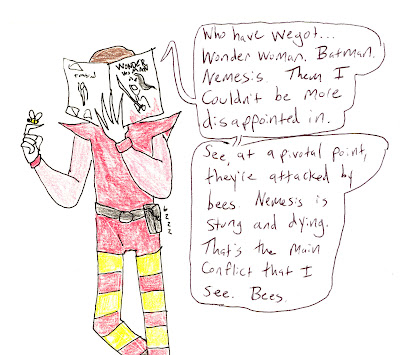 Who have we got...
Wonder Woman. Batman.
Nemesis. Them I
Couldn't be more
disappointed in.
See, at a pivotal point,
they're attacked by
bees. Nemesis is
stung and dying.
That's the main
Conflict that I
See. Bees.
WONDER